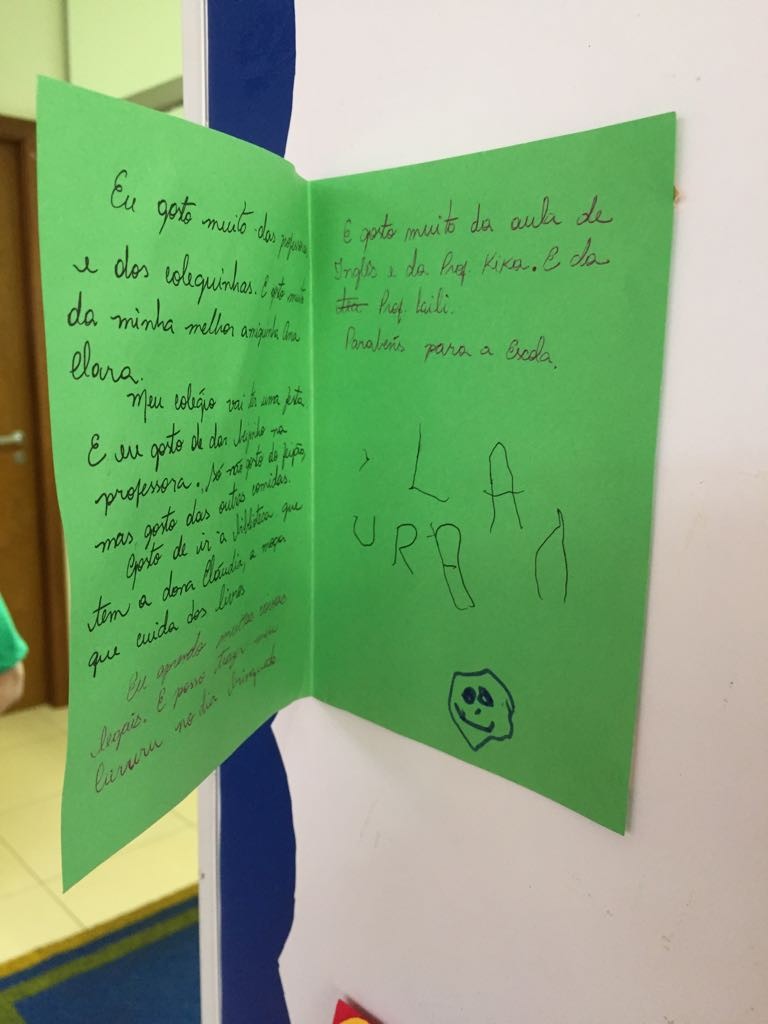 Eu gosto muito das professoras
e dos coleguinhas. E gosto muito
da minha melhor amiguinha Ana
Clara.
Meu colégio vai ter uma festa
E eu gosto de dar beijinho na
professora. Só não gosto do feijão,
mas gosto das outras comidas.
Gosto de ir a biblioteca que
tem a dona Cláudia, a moça
que cuida dos livros
Eu aprendo muitas coisas
legais. E posso trazer meu
no dia brinquedo
E gosto muito da aula de
Inglês e da Prof. Kika. E da
Prof. Laili.
Parabéns para a Escola.
L A
U R A